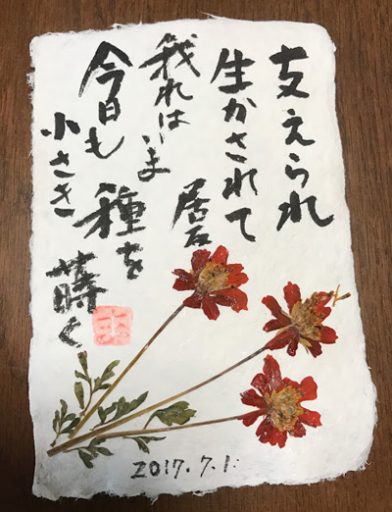 支えられ
生かされて
居る
我れは
いま
今日も
小さき
種を
蒔く
2017.7.1